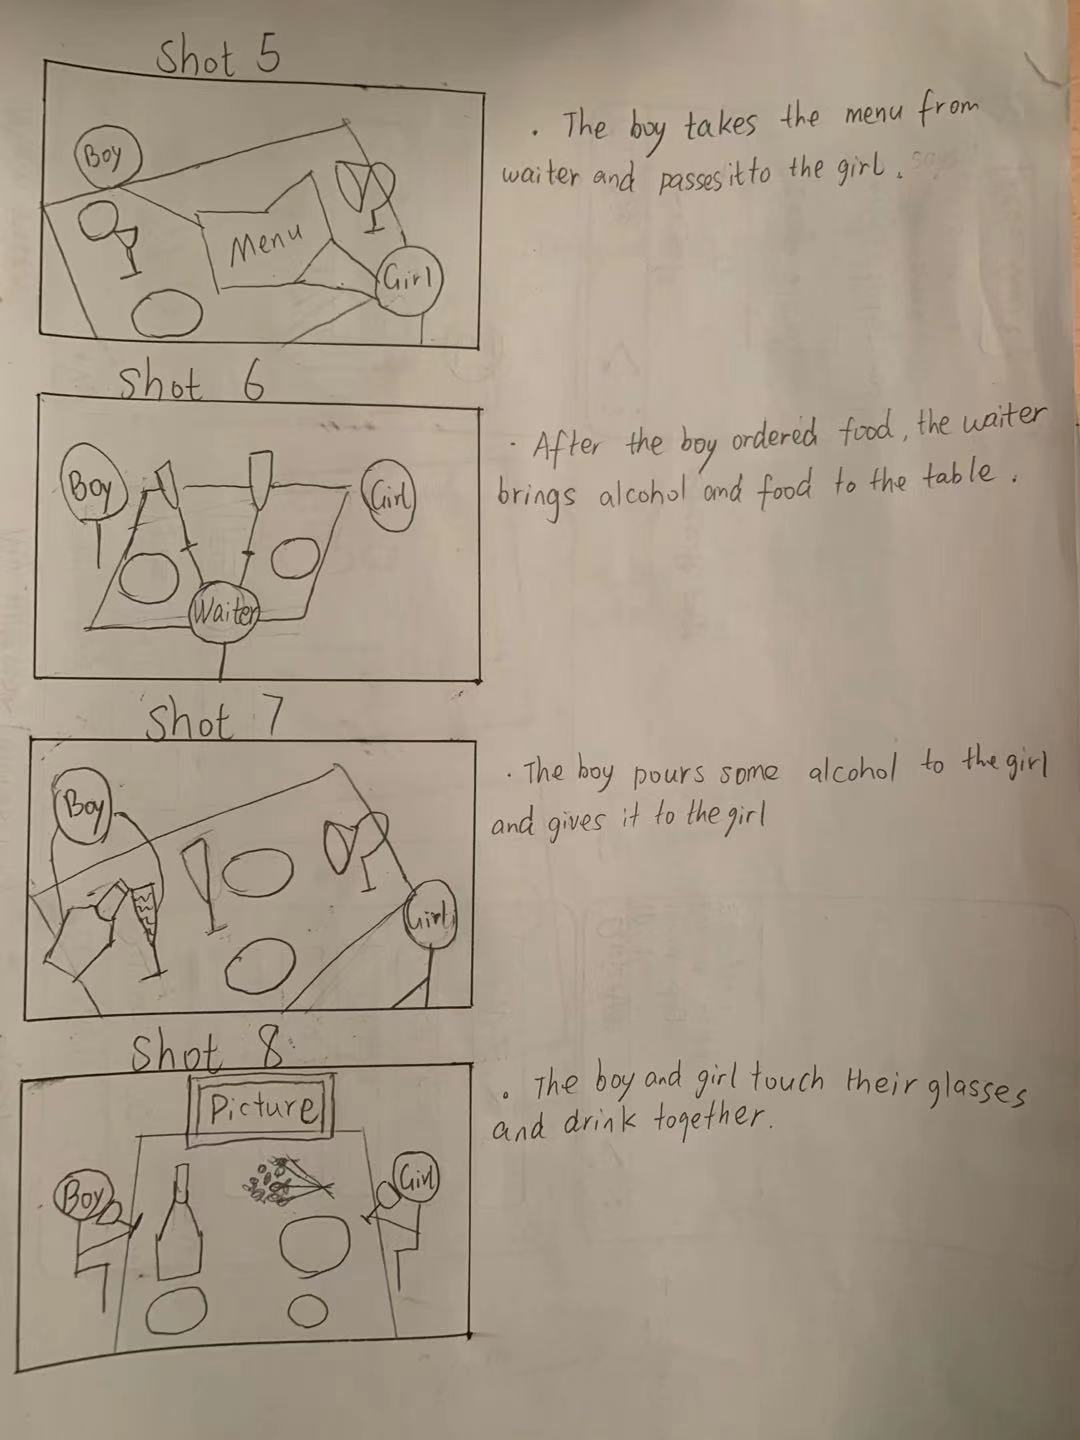 Shot 5
Boy
Menu
Girl
. The boy takes the menu from
waiter and passes it to the girl.
Shot 6
Boy
Girl
Waiter
. After the boy ordered food, the waiter
brings alcohol and food to the table.
Shot 7
Boy
Girl
. The boy pours some alcohol to the girl
and gives it to the girl
Shot 8
Picture
Boy
Girl
. The boy and girl touch their glasses
and drink together.